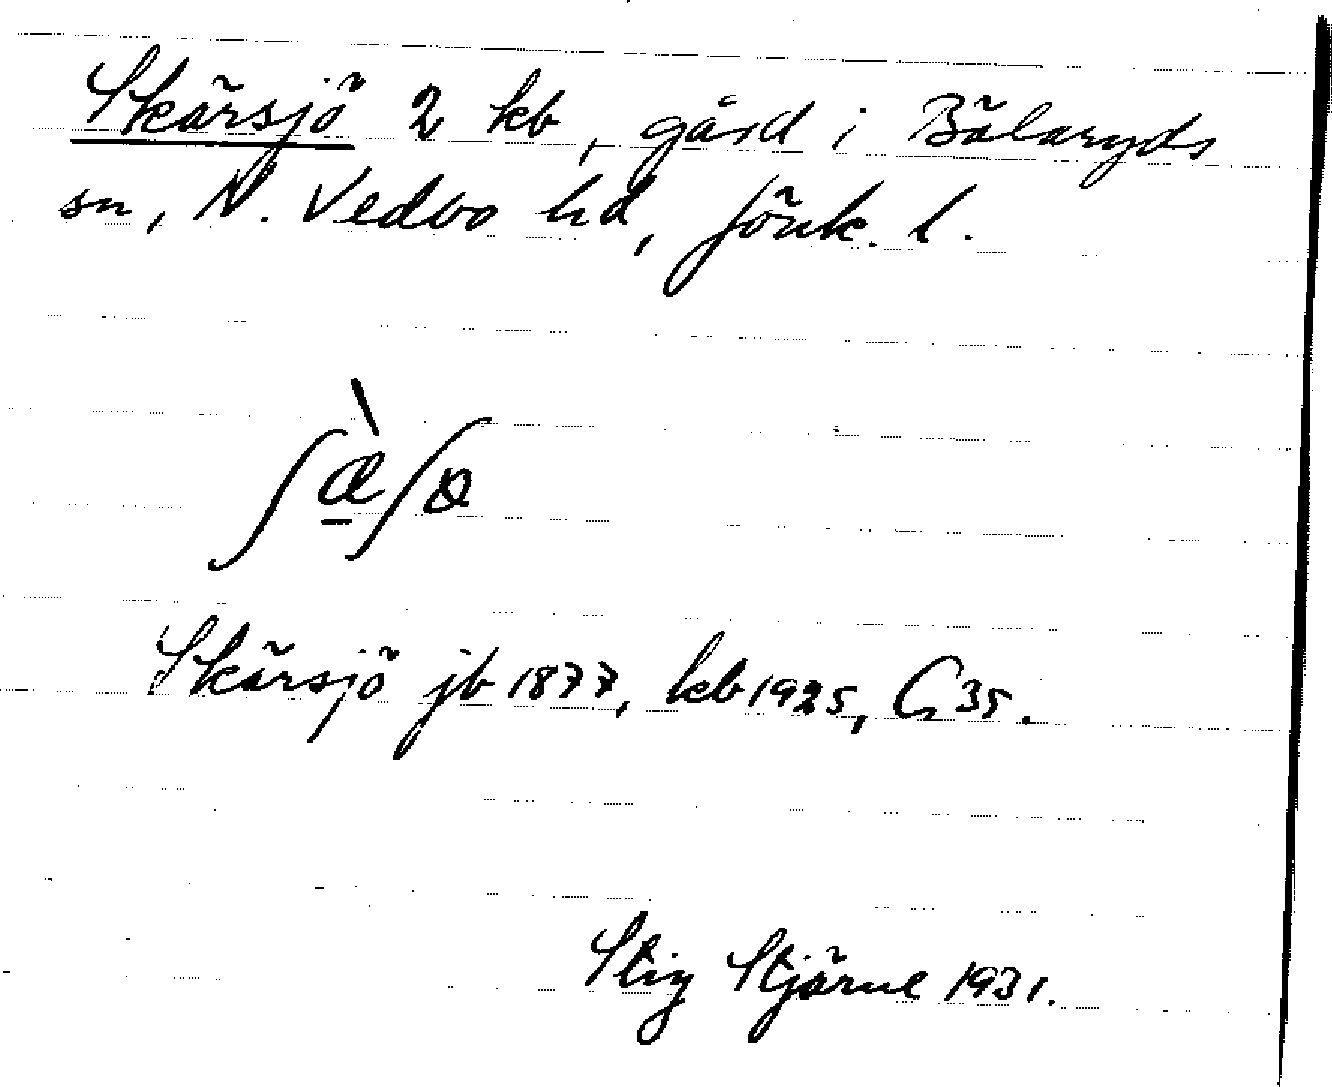 Skärsjö 2 kb, gård i Bälaryds
sn, N. Vedbo hd, Jönk. l.
ʃæ̠̀ʃɵ
Skärsjö jb 1877, kb 1925, G 35.
Stig Stjärne 1931.